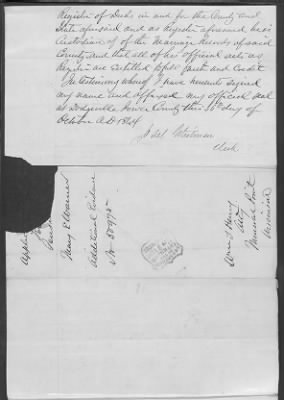 Register of Deeds in and for the County and
State aforesaid and as Register aforesaid has
Custodian of of the Marriage Records of said
County and that all of his official acts as
Register are Entitled to full faith and Credit
In testimony whereof I have hereunto signed
my name and affixed my official seal
at Dodgeville Iowa County this 30th day of
October A.D. 1864
Joel Whitman
Clerk
Mary E Warner
Additional Evidence
No 50975
Wm T Henry
Atty
Mineral Point
Wisconsin